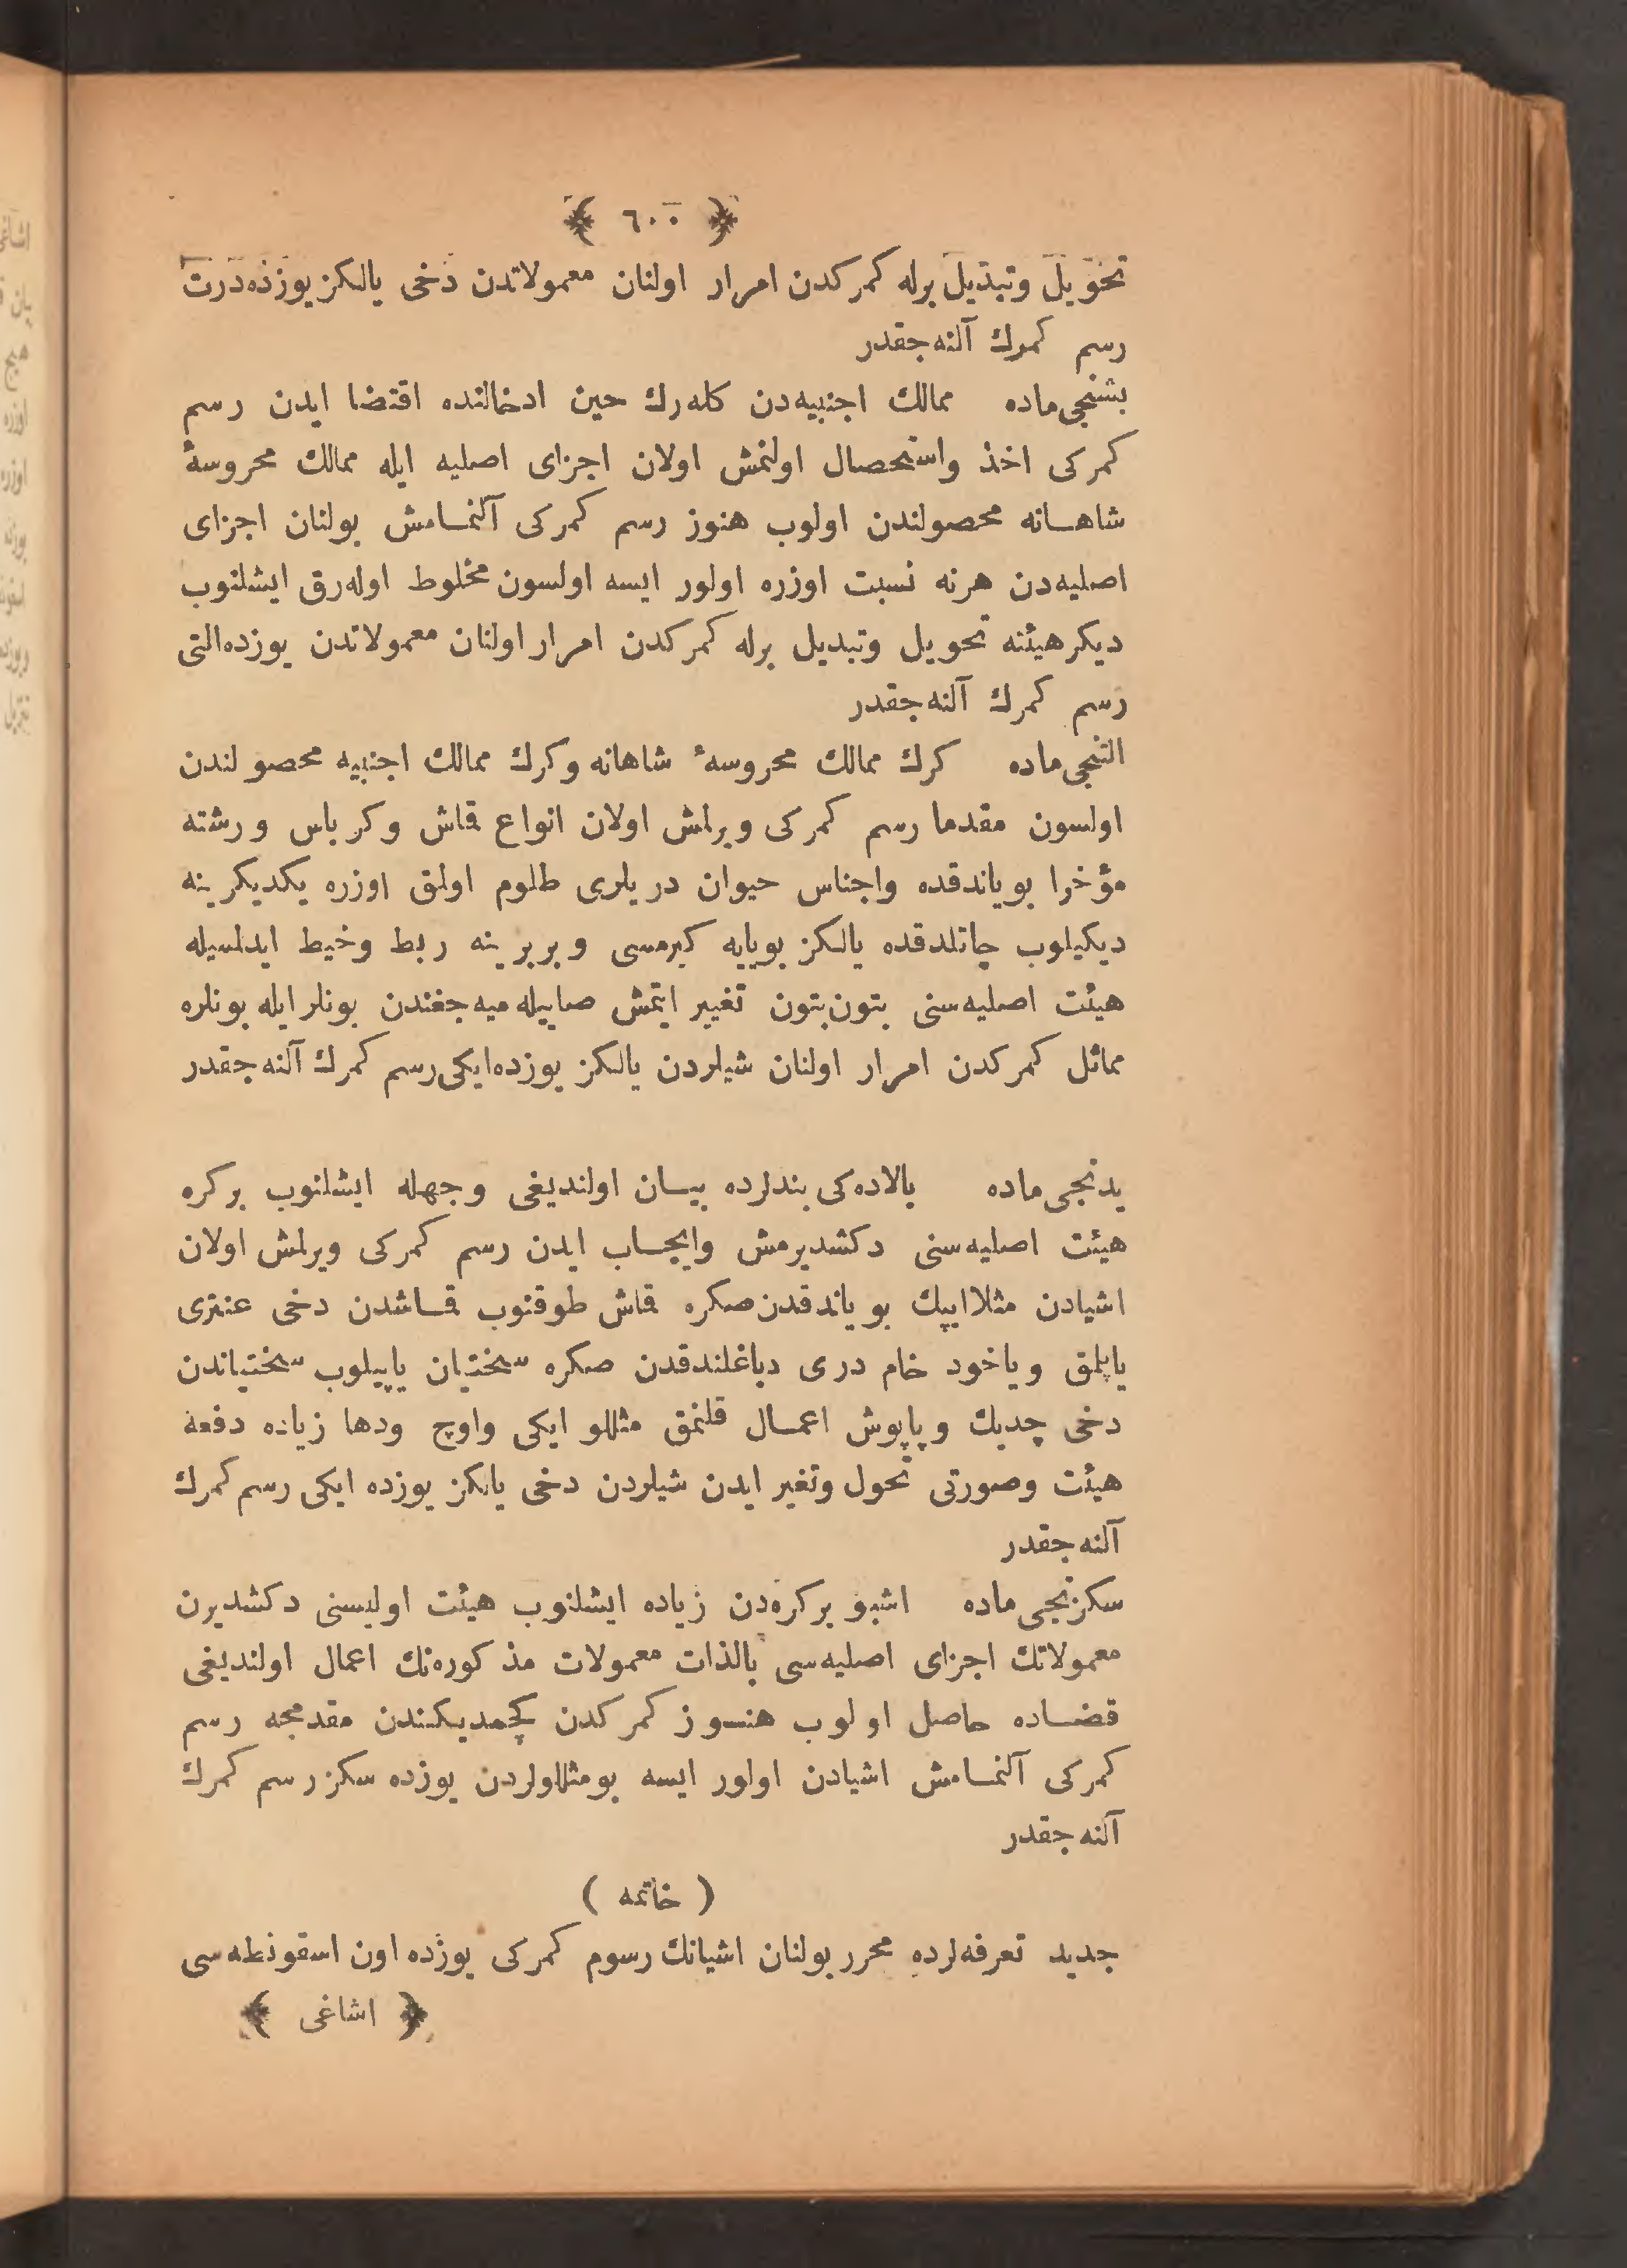 ﴿ ٦٠٠ ﴾
تحويل وتبديل برله كمركدن امرار اولنان معمولاتدن دخى يالكز يوزده درت
رسم كمرك آلنه جقدر
بشنجى ماده ممالك اجنبيه دن كله رك حين ادخالنده اقتضا ايدن رسم
كمركى اخذ واستحصال اولنمش اولان اجزاى اصليه ايله ممالك محروسهٔ
شاهانه محصولندن اولوب هنوز رسم كمركى آلنمامش بولنان اجزاى
اصليه دن هرنه نسبت اوزره اولور ايسه اولسون مخلوط اوله رق ايشلنوب
ديكر هيئته تحويل وتبديل برله كمركدن امرار اولنان معمولاتدن يوزده التى
رسم كمرك آلنه جقدر
التنجى ماده كرك ممالك محروسهٔ شاهانه وكرك ممالك اجنبيه محصولندن
اولسون مقدما رسم كمركى ويرلمش اولان انواع قماش وكرباس ورشته
مؤخرا بوياندقده واجناس حيوان دريلرى طلوم اولمق اوزره يكديكرينه
ديكيلوب چاتلدقده يالكز بويايه كيرمسى وبربرينه ربط وخيط ايدلمسيله
هيئت اصليه سنى بتون بتون تغيير ايتمش صاييله ميه جغندن بونلر ايله بونلره
مماثل كمركدن امرار اولنان شيلردن يالكز يوزده ايكى رسم كمرك آلنه جقدر
يدنجى ماده بالاده كى بندلرده بيان اولنديغى وجهله ايشلنوب بركره
هيئت اصليه سنى دكشديرمش وايجاب ايدن رسم كمركى ويرلمش اولان
اشيادن مثلا ايپك بوياندقدن صكره قماش طوقنوب قماشدن دخى عنترى
ياپلمق وياخود خام درى دباغلندقدن صكره سختيان ياپيلوب سختياندن
دخى چديك وپاپوش اعمال قلنمق مثللو ايكى واوچ ودها زياده دفعه
هيئت وصورتى تحول وتغير ايدن شيلردن دخى يالكز يوزده ايكى رسم كمرك
آلنه جقدر
سكزنجى ماده اشبو بركره دن زياده ايشلنوب هيئت اوليسنى دكشديرن
معمولاتك اجزاى اصليه سى بالذات معمولات مذكوره نك اعمال اولنديغى
قضاده حاصل اولوب هنوز كمركدن كچمديكندن مقدمجه رسم
كمركى آلنمامش اشيادن اولور ايسه بومثللولردن يوزده سكز رسم كمرك
آلنه جقدر
( خاتمه )
جديد تعرفه لرده محرر بولنان اشيانك رسوم كمركى يوزده اون اسقونطه سى
﴿ اشاغى ﴾